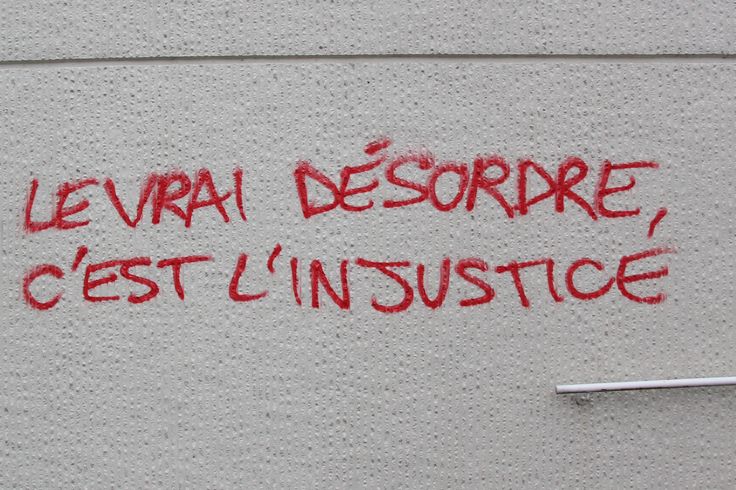 LE VRAI DÉSORDRE,
C'EST L'INJUSTICE